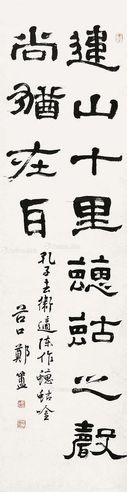 違山十里蟪蛄之聲
尚猶在耳
孔子去衛適陳作蟪蛄吟
苕口鄭簠